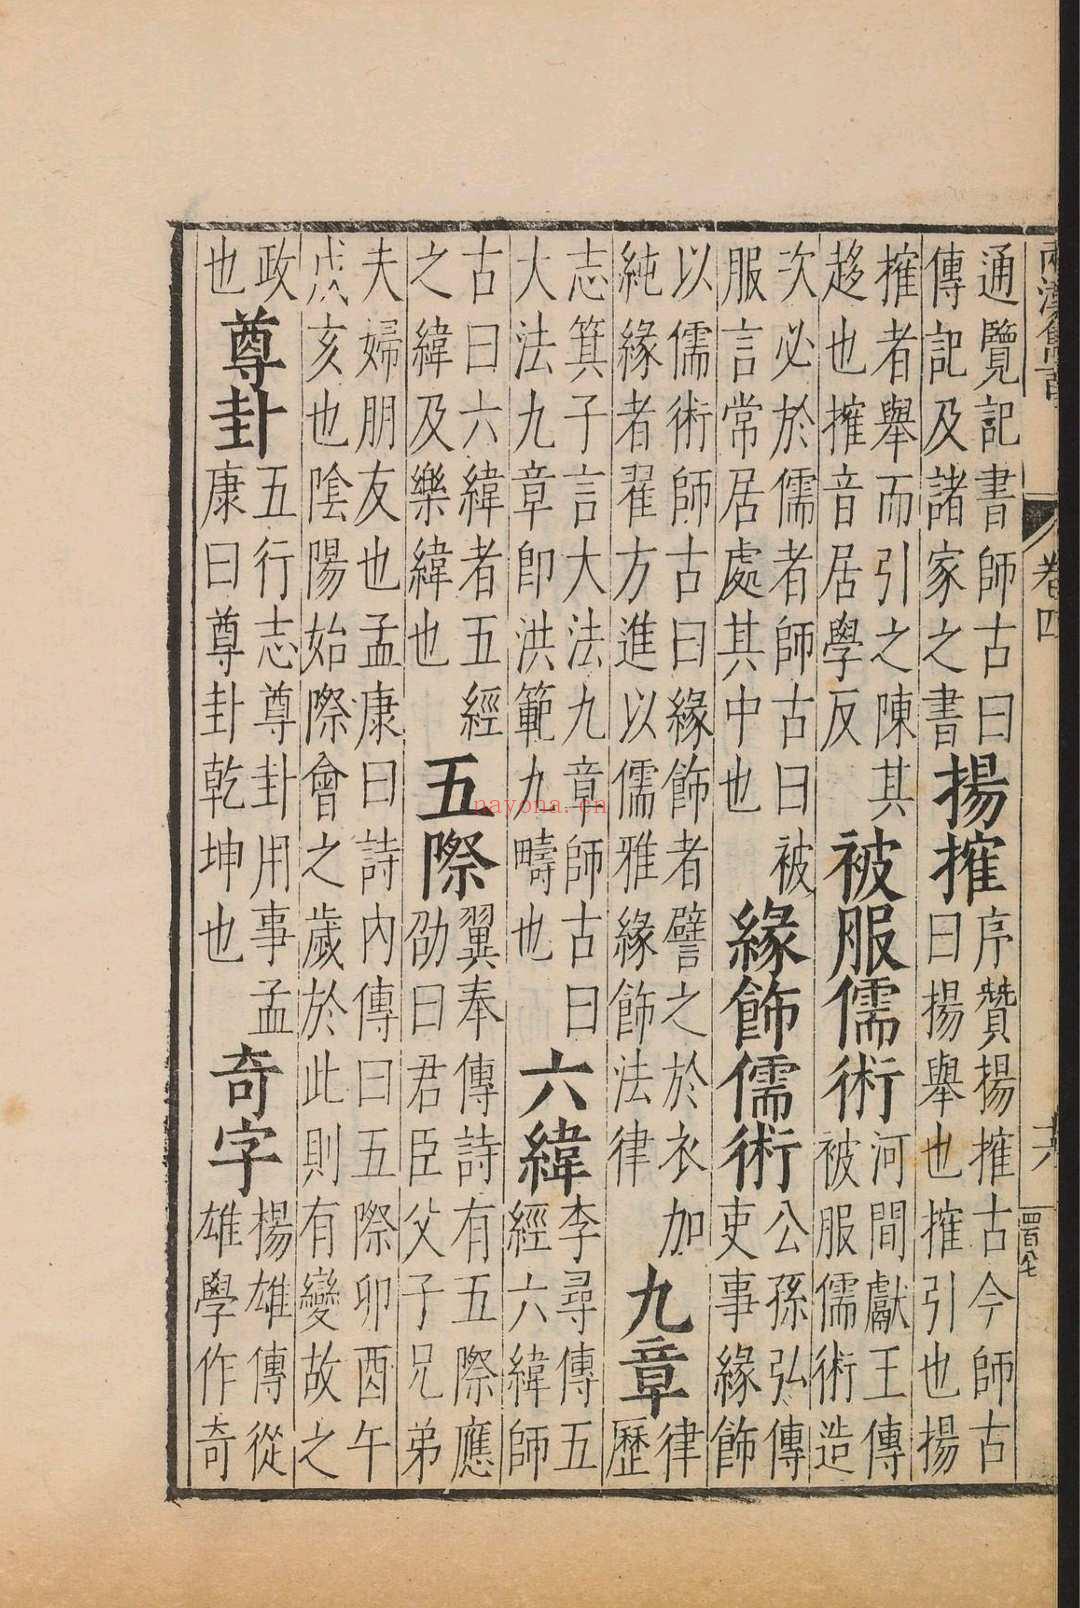 卷四
通覽記書師古曰
傳記及諸家之書
揚搉
序贊揚搉古今師古
曰揚舉也搉引也揚
搉者舉而引之陳其
趍也搉音居學反
被服儒術
河間獻王傳
被服儒術造
次必於儒者師古曰被
服言常居處其中也
緣飾儒術
公孫弘傳
吏事緣飾
以儒術師古曰緣飾者譬之於衣加
純緣者翟方進以儒雅緣飾法律
九章
律
歷
志箕子言大法九章師古曰
大法九章即洪範九疇也
六緯
李尋傳五
經六緯師
古曰六緯者五經
之緯及樂緯也
五際
翼奉傳詩有五際應
劭曰君臣父子兄弟
夫婦朋友也孟康曰詩內傳曰五際卯酉午
戌亥也陰陽始際會之歲於此則有變故之
政
也
尊卦
五行志尊卦用事孟
康曰尊卦乾坤也
奇字
楊雄傳從
雄學作奇
nayona.cn